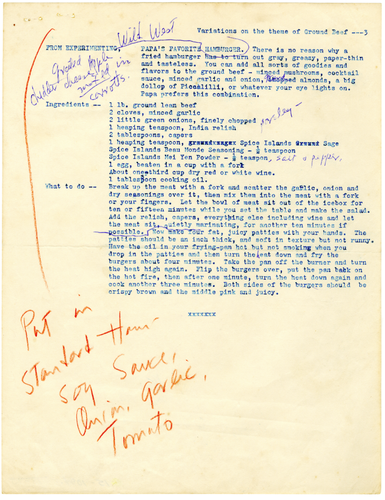 Variations on the theme of Ground Beef ---3
Wild West
Grated apple
cheese
mixed in
carrots.
FROM EXPERIMENTING, PAPA'S FAVORITE HAMBURGER. There is no reason why a
fried hamburger has to turn out gray, greasy, paper-thin
and tasteless. You can add all sorts of goodies and
flavors to the ground beef - minced mushrooms, cocktail
sauce, minced garlic and onion, chopped almonds, a big
dollop of Piccadilli, or whatever your eye lights on.
Papa prefers this combination.
Ingredients -- 1 lb. ground lean beef
2 cloves, minced garlic
2 little green onions, finely chopped parsley -
1 heaping teaspoon, India relish
2 tablespoons, capers
1 heaping teaspoon, Spice Islands Sage
Spice Islands Beau Monde Seasoning - ½ teaspoon
Spice Islands Mei Yen Powder - ½ teaspoon, salt & pepper.
1 egg, beaten in a cup with a fork
About one third cup dry red or white wine.
1 tablespoon cooking oil.
What to do -- Break up the meat with a fork and scatter the garlic, onion and
dry seasonings over it, then mix them into the meat with a fork
or your fingers. Let the bowl of meat sit out of the icebox for
ten or fifteen minutes while you set the table and make the salad.
Add the relish, capers, everything else including wine and let
the meat sit, quietly marinating, for another ten minutes if
possible. Now make four fat, juicy patties with your hands. The
patties should be an inch thick, and soft in texture but not runny.
Have the oil in your frying-pan hot but not smoking when you
drop in the patties and then turn the heat down and fry the
burgers about four minutes. Take the pan off the burner and turn
the heat high again. Flip the burgers over, put the pan back on
the hot fire, then after one minute, turn the heat down again and
cook another three minutes. Both sides of the burgers should be
crispy brown and the middle pink and juicy.
Put in
Standard Ham-
Soy Sauce,
Onion, Garlic,
Tomato